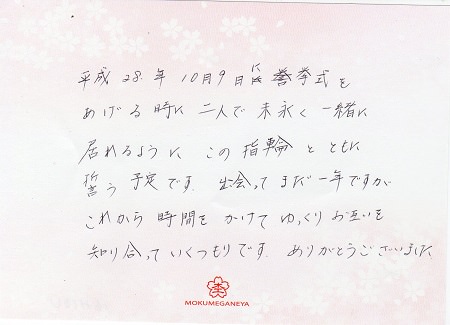 平成28年10月9日に挙式を
あげる時に二人で末永く一緒に
居れるように この指輪とともに
誓う予定です。出会ってまだ一年ですが
これから時間をかけてゆっくりお互いを
知り合っていくつもりです。ありがとうございました
MOKUMEGANEYA